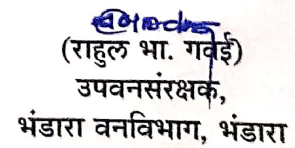 (राहुल भा. गवई)
उपवनसंरक्षक,
भंडारा वनविभाग, भंडारा